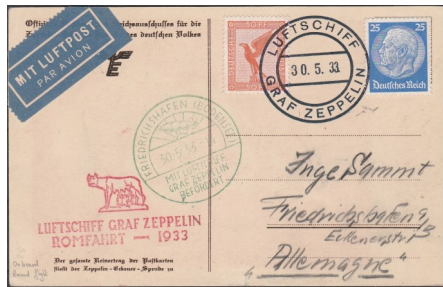 Offizi ichsausschusses für die
Z es deutschen Volkes
MIT LUFTPOST
PAR AVION
50 PF
LUFTSCHIFF
30.5.33
GRAF ZEPPELIN
25 25
Deutsches Reich
FRIEDRICHSHAFEN (BODENSEE)
30.5.33
MIT LUFTSCHIFF
GRAF ZEPPELIN
BEFÖRDERT
LUFTSCHIFF GRAF ZEPPELIN
ROMFAHRT — 1933
Der gesamte Reinertrag der Postkarten
fließt der Zeppelin-Eckener-Spende zu
Inge Sammt
Friedrichshafen
Eckenerstr
"Allemagne"